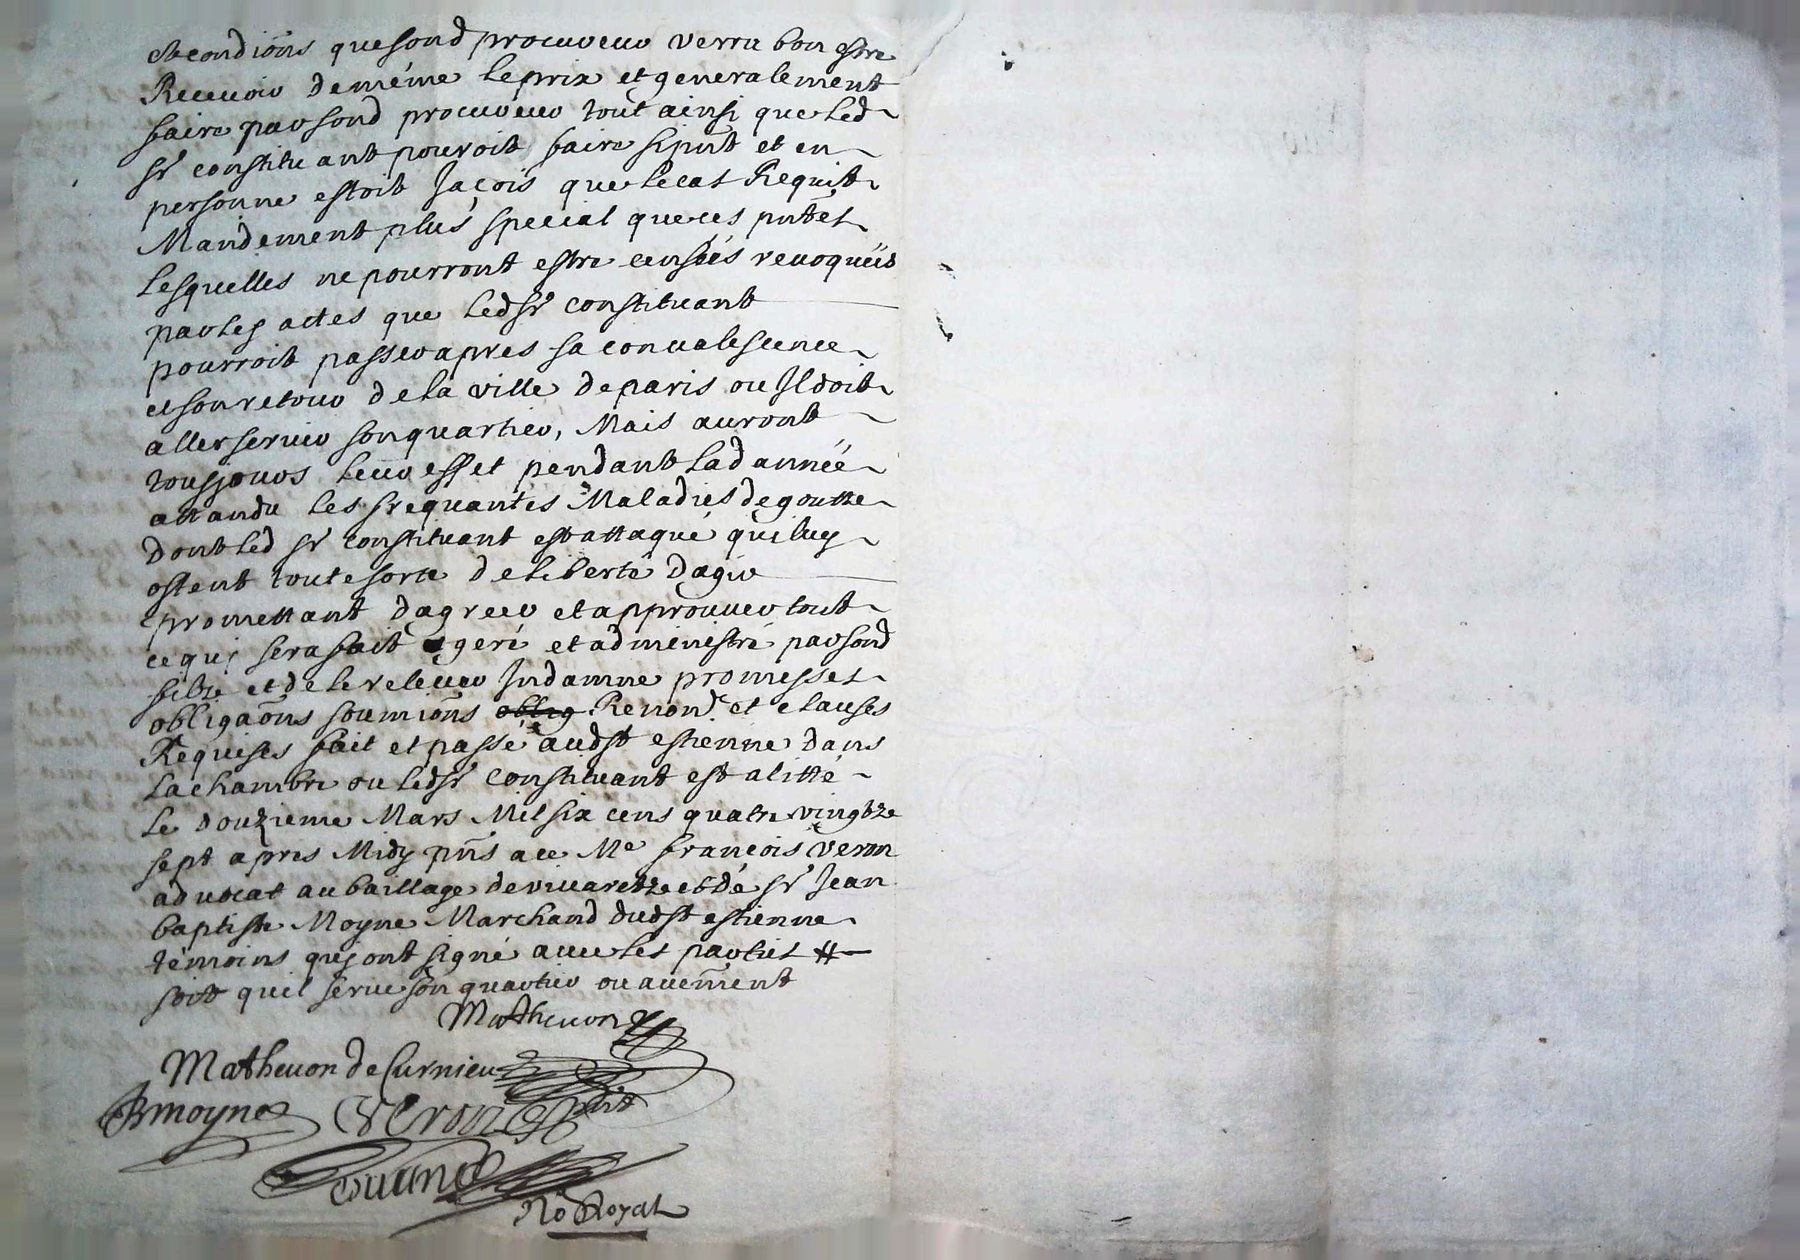 et condiõns que sond procureur verra bon estre
Recevoir de méme le prix et generalement
faire par sond procureur tout ainsi que led
sr constituant pouroit faire si pñt et en
personne estoit Jaçois que le cas Requit
Mandement plus special que ces pñtes
Lesquelles ne pourront estre censées revoquées
par les actes que led sr constituant
pourroit passer apres sa convalescence
et son retour de la ville de paris ou Il doit
aller servir son quartier, Mais auront
tousjours leur effet pendant lad année
attandu les frequantes Maladies de goutte
dont led sr constituant est attaqué qui luy
ostent toute sorte de liberté dagir
promettant dagreer et approuver tout
ce qui sera fait geré et administré par sond
filz et de le relever Indamne promesses
obligaõns soumiõns oblig Renond. et clauses
Requises fait et passé aud st estienne dans
la chambre ou led sr constituant est alitté
le douzieme Mars Mil six cens quatre vingtze
sept apres Midy pñs a ce Me francois veron
advocat au baillage de vivaretze et de sr Jean
baptiste Moyne Marchand dud st estienne
témoins qui ont signé avec les parties #
soit quil serve son quartier ou avemẽnt
Matheuon
Matheuon de Curnieu
JB moyne Veron pñt
No Royal